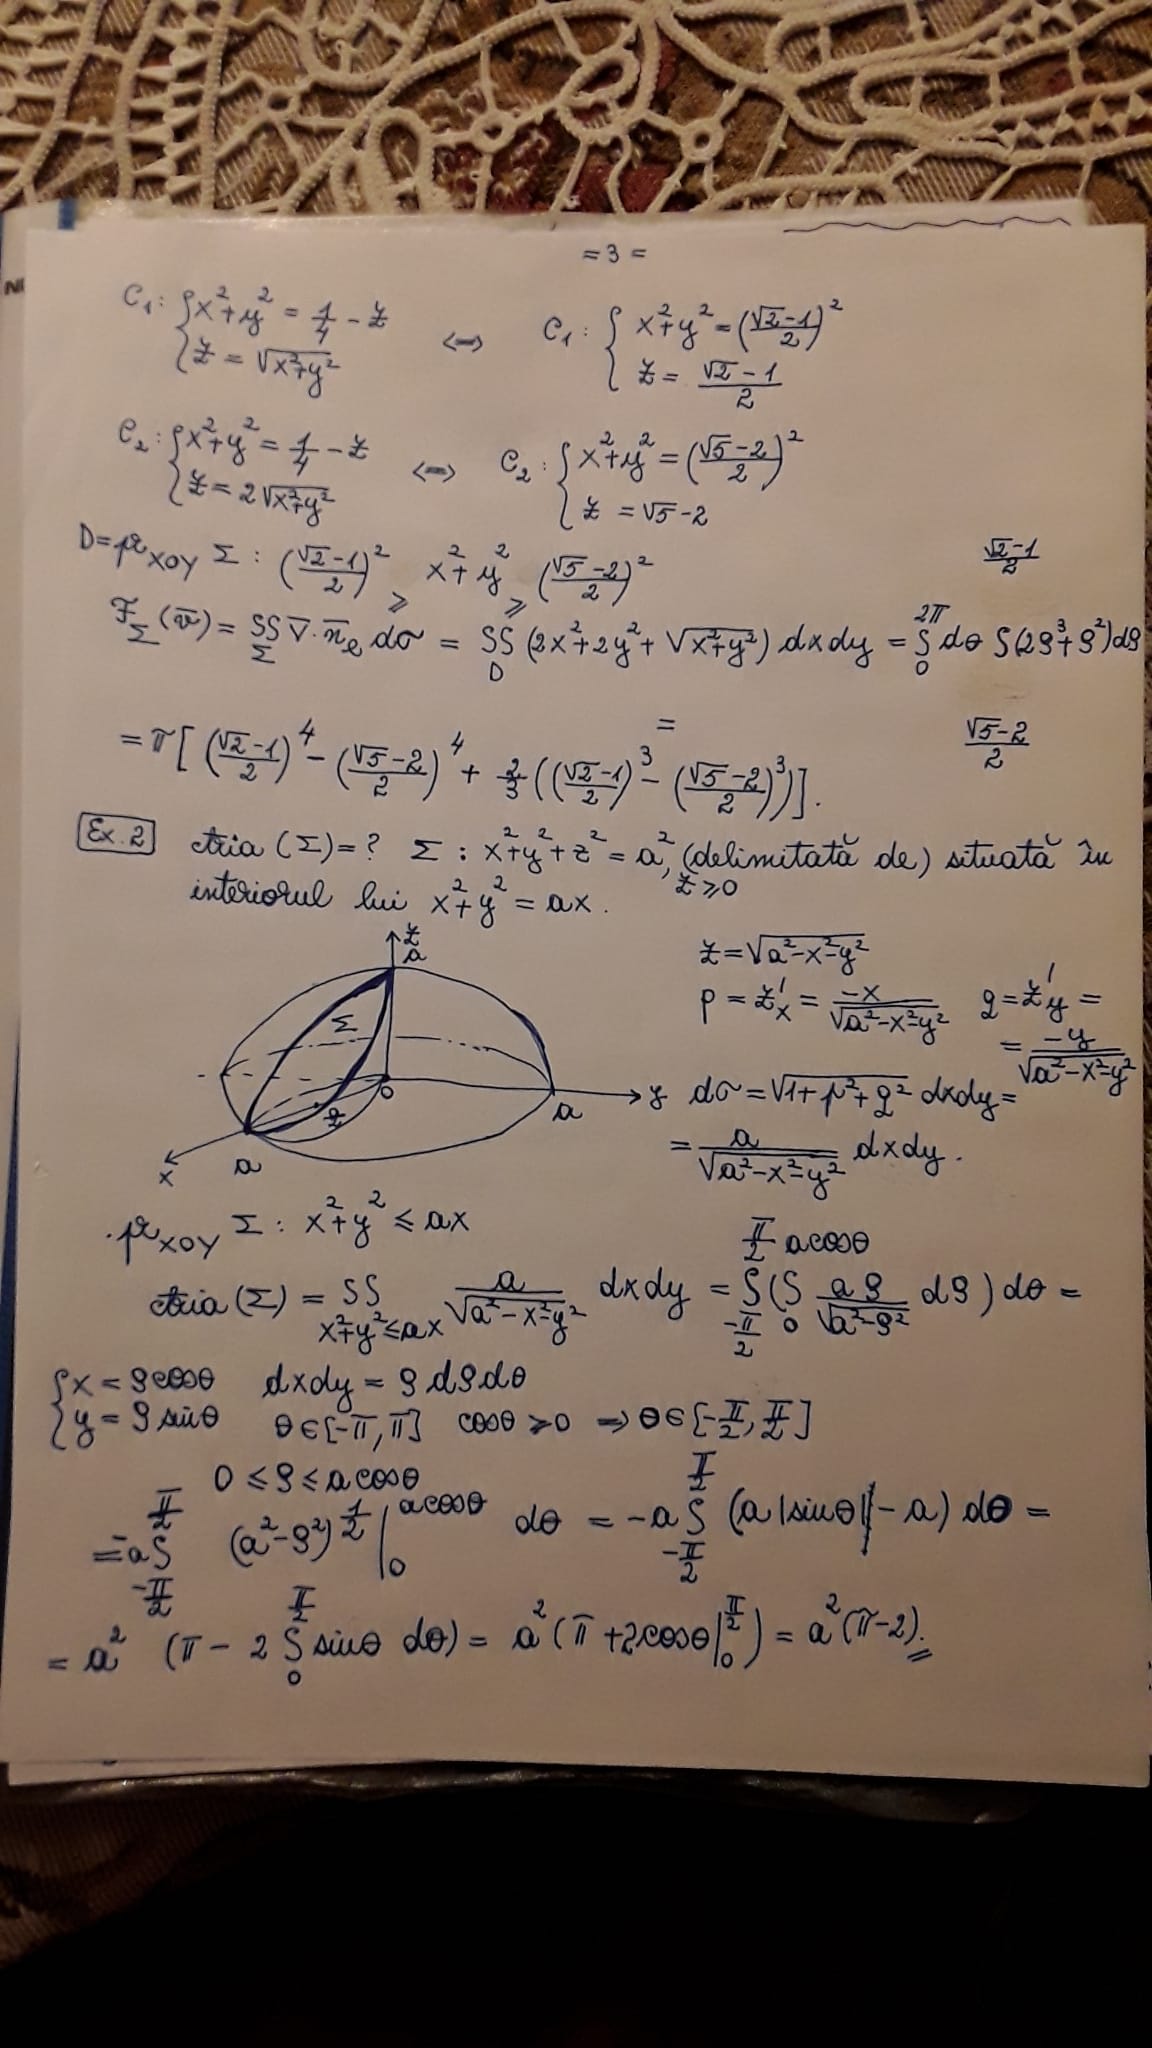 = 3 =
C₁: { x²+y² = 1/4 - z ; z = √(x²+y²) <=> C₁: { x²+y² = ((√2-1)/2)² ; z = (√2-1)/2
C₂: { x²+y² = 1/4 - z ; z = 2√(x²+y²) <=> C₂: { x²+y² = ((√5-2)/2)² ; z = √5-2
D = pr_XOY Σ: ((√2-1)/2)² ≥ x²+y² ≥ ((√5-2)/2)²
F_Σ(v̄) = ∫∫_Σ V̄·n̄_e dσ = ∫∫_D (2x²+2y²+√(x²+y²)) dxdy = ∫_0^{2π} dθ ∫_{(√5-2)/2}^{(√2-1)/2} (2ρ³+ρ²)dρ =
= π[((√2-1)/2)⁴ - ((√5-2)/2)⁴ + 2/3 (((√2-1)/2)³ - ((√5-2)/2)³)].
Ex. 2 Aria (Σ) = ? Σ: x²+y²+z² = a², z ≥ 0 (delimitată de) situată în
interiorul lui x²+y² = ax.
z
a
Σ
O
y
a
a
x
z = √(a²-x²-y²)
p = z'x = -x/√(a²-x²-y²) q = z'y =
= -y/√(a²-x²-y²)
dσ = √(1+p²+q²) dxdy =
= a/√(a²-x²-y²) dxdy.
·pr_XOY Σ: x²+y² ≤ ax
Aria (Σ) = ∫∫_{x²+y²≤ax} a/√(a²-x²-y²) dxdy = ∫_{-π/2}^{π/2} (∫_0^{a cosθ} aρ/√(a²-ρ²) dρ) dθ =
{ x = ρ cosθ dxdy = ρ dρ dθ
y = ρ sinθ θ ∈ [-π, π] cosθ ≥ 0 => θ ∈ [-π/2, π/2]
0 ≤ ρ ≤ a cosθ
= -a ∫_{-π/2}^{π/2} (a²-ρ²)^{1/2} |_0^{a cosθ} dθ = -a ∫_{-π/2}^{π/2} (a|sinθ| - a) dθ =
= a² (π - 2 ∫_0^{π/2} sinθ dθ) = a² (π + 2cosθ|_0^{π/2}) = a² (π-2).